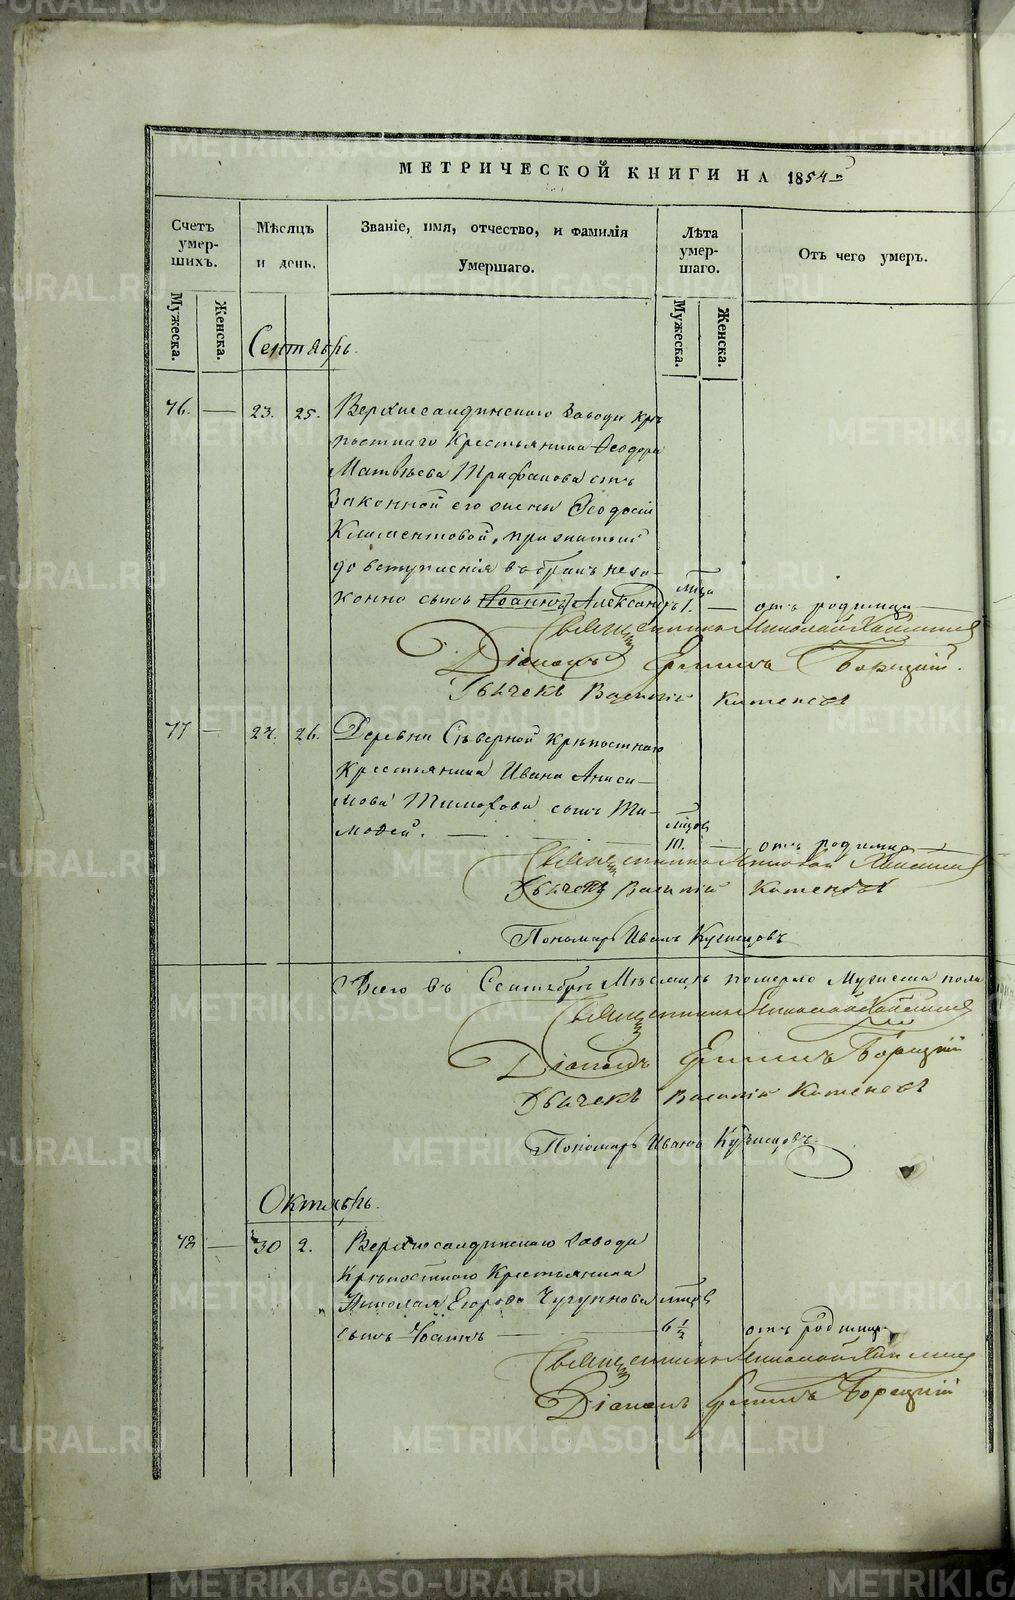 МЕТРИЧЕСКОЙ КНИГИ НА 1854
Счетъ умершихъ.
Мѣсяцъ и день.
Званіе, имя, отчество, и фамилія Умершаго.
Лѣта умершаго.
Отъ чего умеръ.
Мужеска.
Женска.
Мужеска.
Женска.
Сентябрь.
76. — 23. 25. Верхнесалдинскаго Завода крѣ
постнаго Крестьянина Ѳеодора
Матвѣева Трифанова отъ
Законной его жены Ѳеодосіи
Климентовой, прижитый
до вступленія въ бракъ неза-
конно сынъ Іоаннъ Александръ 1. — отъ родимца
Священникъ Николай
Діаконъ Борецкій.
Дьячекъ Василій
77 — 24. 26. Деревни Сѣверной крѣпостнаго
Крестьянина Ивана Аниси-
мова Тимофова сынъ Ти-
моѳей. —
10. — отъ родимца
Священникъ Николай
Дьячекъ Василій
Пономарь Иванъ Кузнецовъ
Всего въ Сентябрѣ Мѣсяцѣ померло Мужеска пола
Священникъ Николай
Діаконъ Борецкій
Дьячекъ Василій
Пономарь Иванъ Кузнецовъ
Октябрь.
78 — 30 2. Верхнесалдинскаго Завода
Крѣпостнаго Крестьянина
Николая Егорова Чугунова
сынъ Іоаннъ — 6 1/2 отъ родимца
Священникъ Николай
Діаконъ Борецкій
METRIKI.GASO-URAL.RU